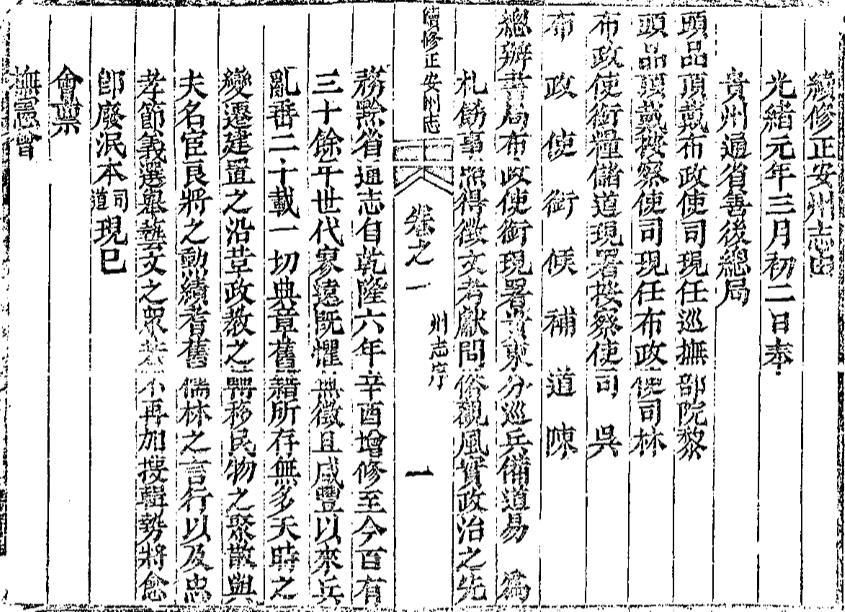 續修正安州志由
光緒元年三月初二日奉
貴州通省善後總局
頭品頂戴布政使司現任巡撫部院黎
頭品頂戴按察使司現任布政使司林
布政使銜糧儲道現署按察使司 吳
布政使銜候補道陳
總辦書局布政使銜現署貴東分巡兵備道易 為
札飭事照得徵文考獻問俗觀風實政治之先
續修正安州志
卷之一
州志序
一
務黔省通志自乾隆六年辛酉增修至今百有
三十餘年世代寥遠旣懼無徵且咸豐以來兵
亂垂二十載一切典章舊籍所存無多天時之
變遷建置之沿革政敎之轉移民物之聚散與
夫名宦良將之勳績耆舊儒林之言行以及忠
孝節義選舉藝文之眾若不再加搜輯勢將愈
卽廢泯本司道現已
會稟
撫憲曾